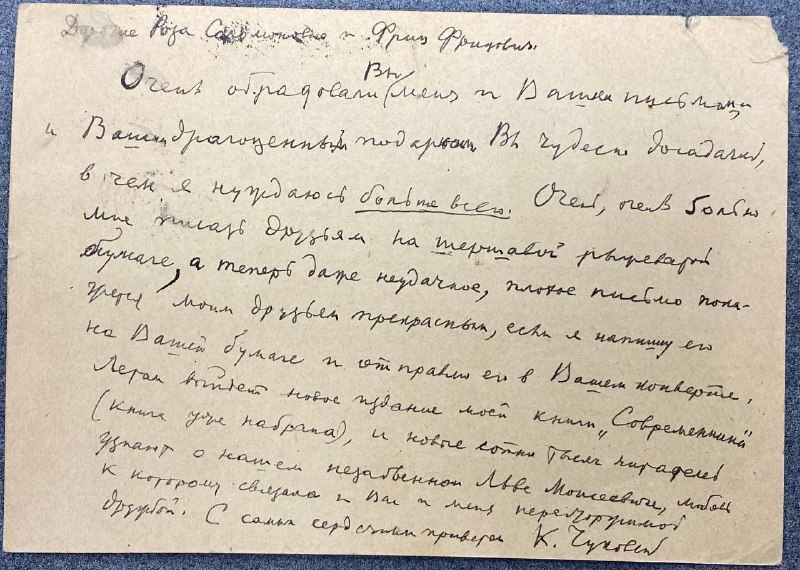 Дорогие Роза Соломоновна и Фриц Фрицович.
Очень обрадовали Вы меня и Вашим письмом,
и Вашим драгоценным подарком. Вы чудесно догадались,
в чем я нуждаюсь больше всего. Очень, очень больно
мне писать друзьям на шершавой рыжеватой
бумаге, а теперь даже неудачное, плохое письмо пока-
жется моим друзьям прекрасным, если я напишу его
на Вашей бумаге и отправлю его в Вашем конверте.
Летом выйдет новое издание моей книги „Современники“
(книга уже набрана), и новые сотни тысяч читателей
узнают о нашем незабвенном Льве Моисеевиче, любовь
к которому связала и Вас и меня нерасторжимой
дружбой. С самым сердечным приветом К. Чуковский